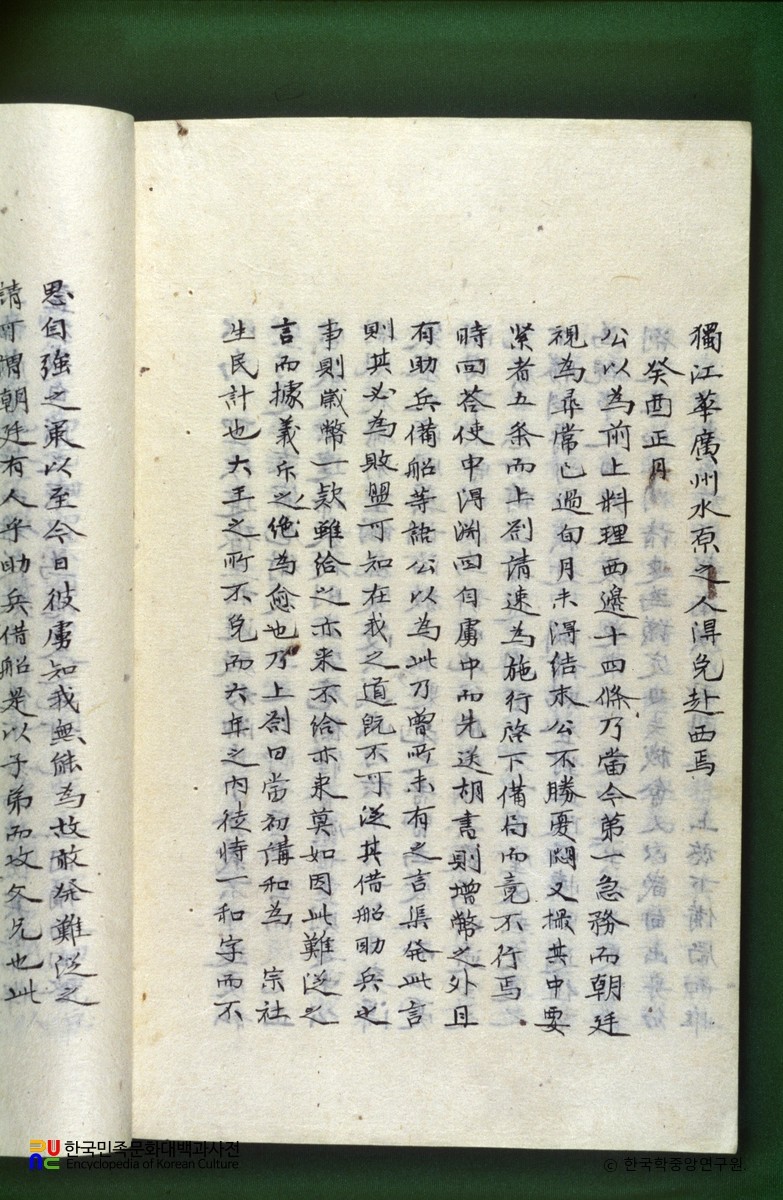 獨江華廣州水原之人得免赴西焉
癸酉正月
公以為前上料理西邊十四條乃當今第一急務而朝廷
視為尋常已過旬月未得結末公不勝憂悶又撮其中要
緊者五条而上劄請速為施行啓下備局而竟不行焉
時回答使申得淵回自虜中而先送胡書則增幣之外且
有助兵備船等語公以為此乃曾所未有之言渠発此言
則其必為敗盟可知在我之道旣不可從其借船助兵之
事則歲幣一款雖給之亦来不給亦来莫如因此難從之
言而據義斥之絶為愈也乃上劄曰當初講和為 宗社
生民計也大王之所不免而六年之內徒恃一和字而不
思自強之策以至今日彼虜知我無能為故敢発難從之
請可謂朝廷有人乎助兵借船是以子弟而攻父兄也此
한국민족문화대백과사전
Encyclopedia of Korean Culture
© 한국학중앙연구원